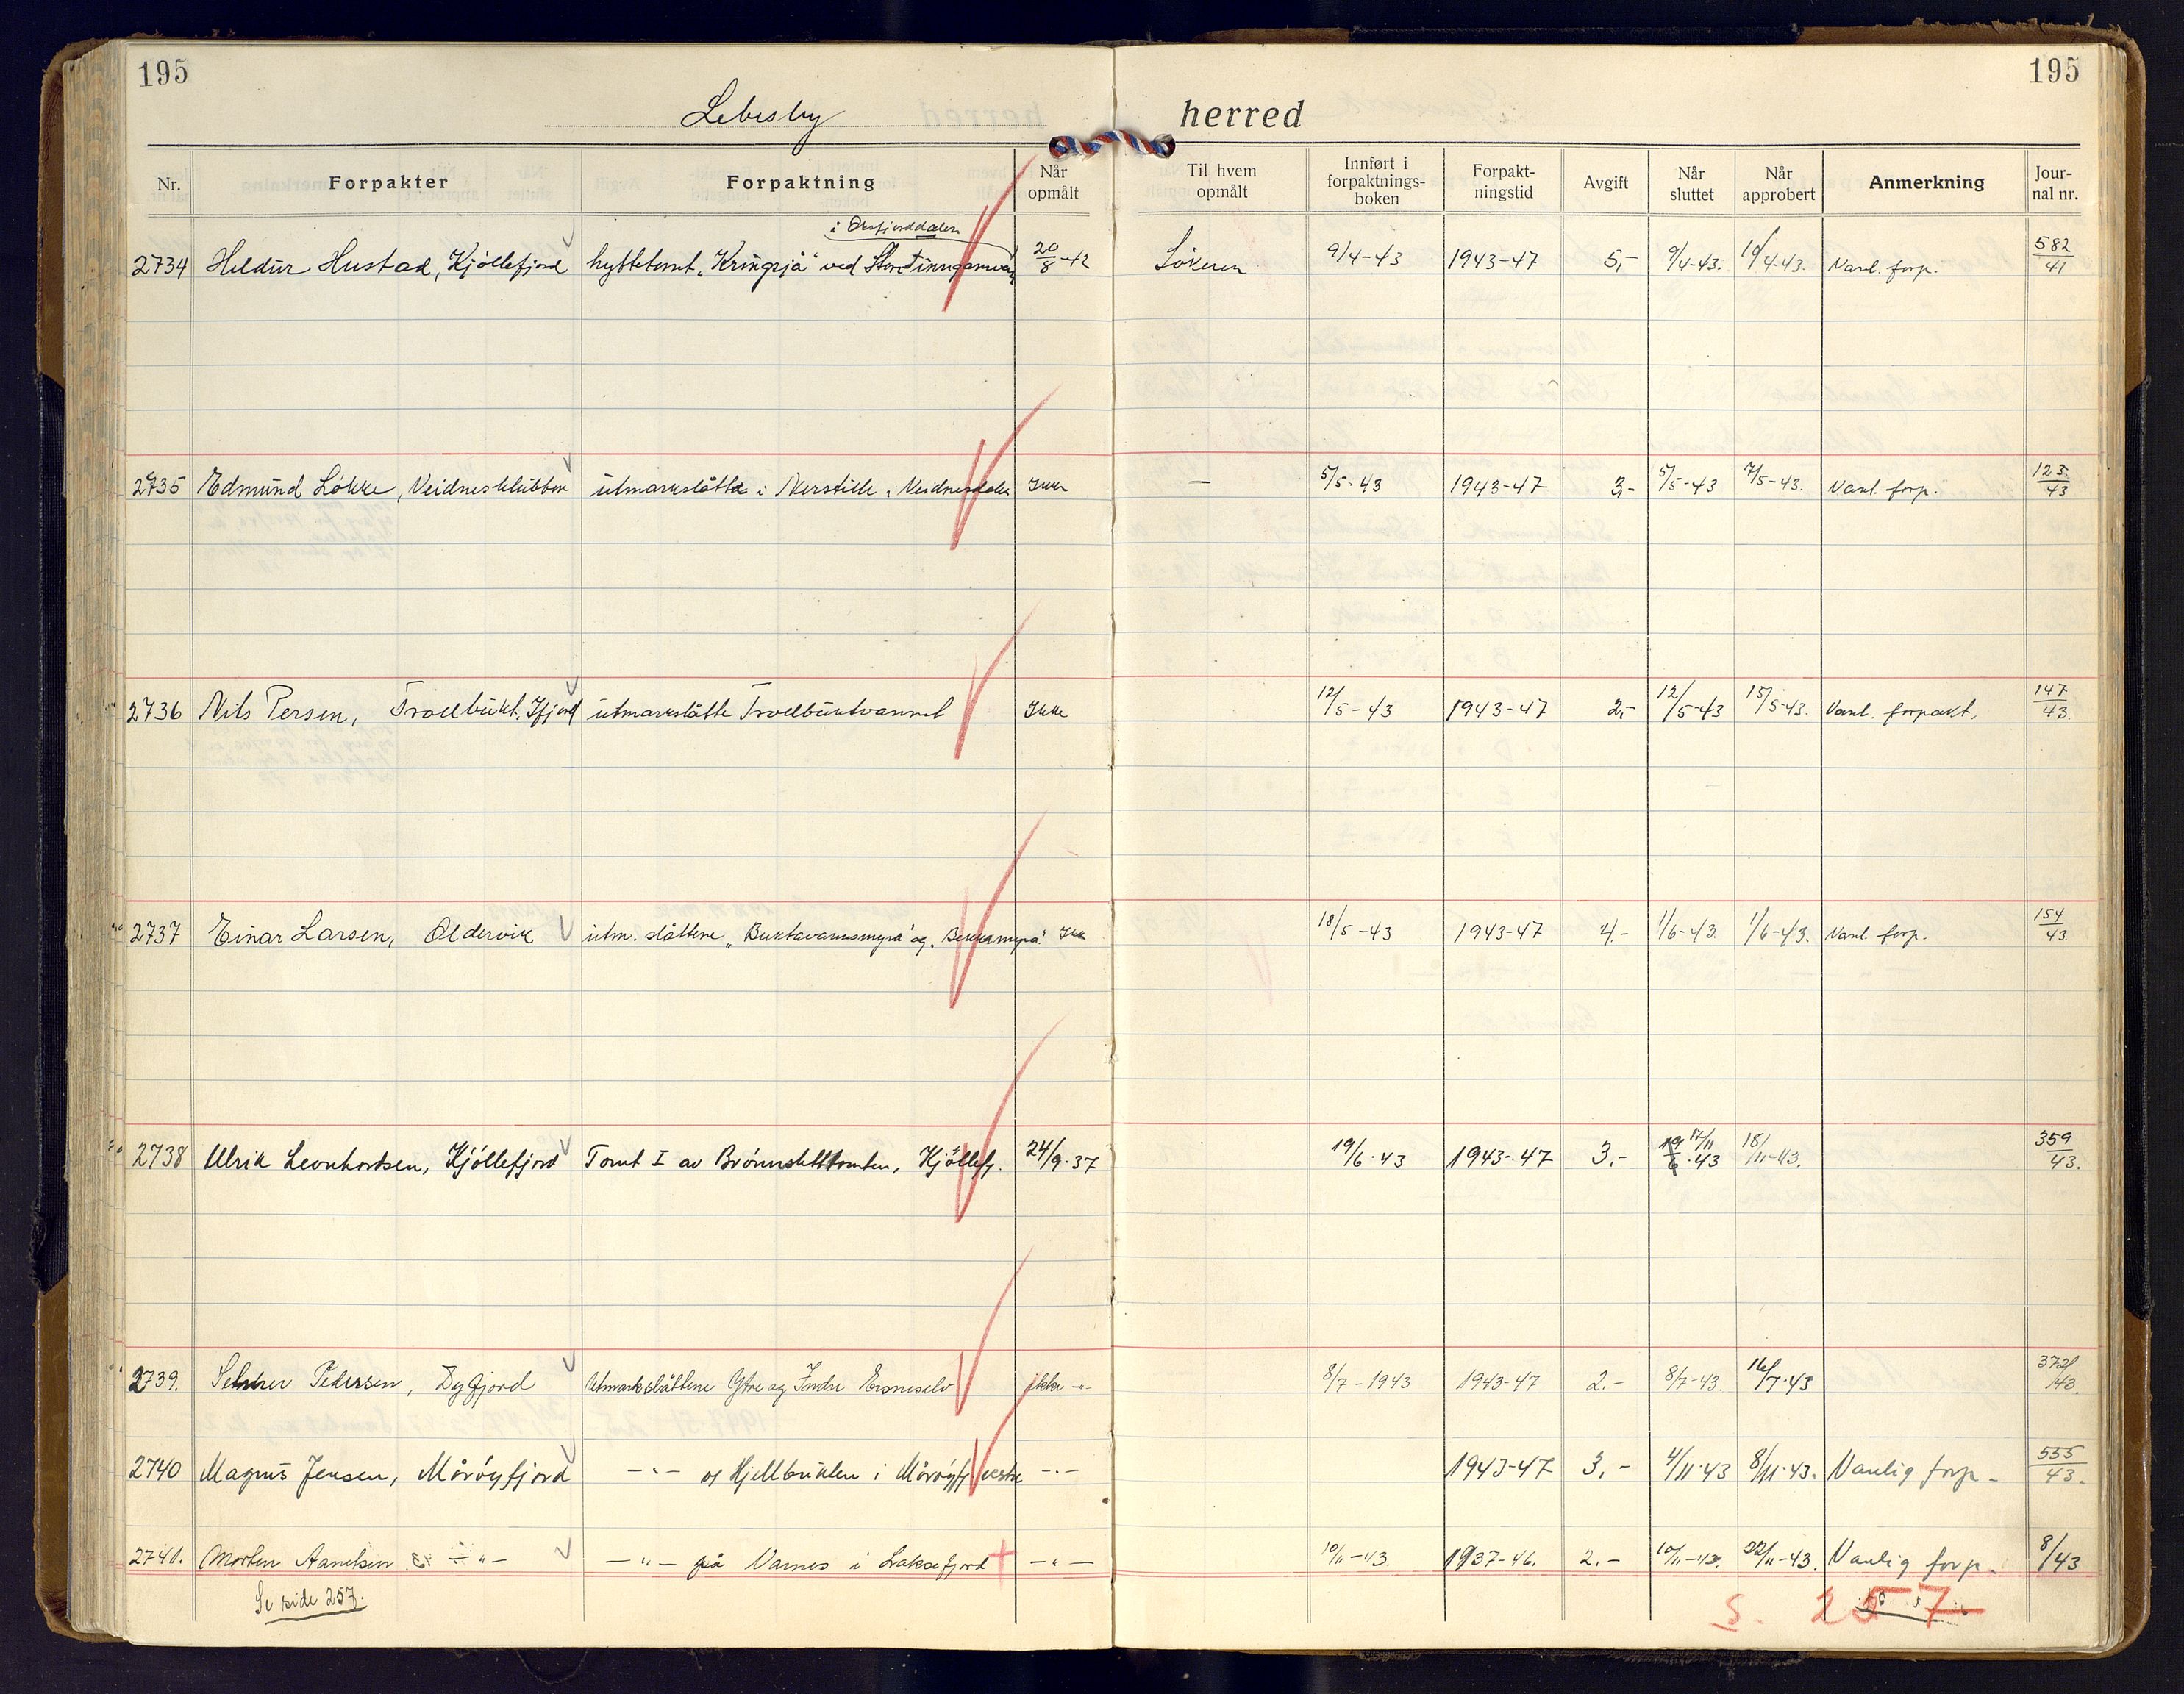 195
195
Lebesby herred
Nr. Forpakter Forpaktning Når opmålt Til hvem opmålt Innført i forpaktnings-boken Forpakt-ningstid Avgift Når sluttet Når approbert Anmerkning Jour-nal nr.
i Oksfjorddalen
2734 Hildur Hustad, Kjöllefjord hyttetomt "Kringsjå" ved 20/8-42 9/4-43 1943-47 5,- 9/4-43. Vanl. forp. 582/41
2735 Edmund Løkke, Veidnesklubben utmarkslåtte i Veidnesdalen Ikke — 5/5-43 1943-47 3,- 5/5-43 7/5-43. Vanl. forp. 123/43
2736 Nils Persen, Trollbukt. Ifjord utmarkslåtte Trollbuktvannet Ikke 12/5-43 1943-47 2,- 12/5-43 15/5-43. Vanl. forpakt. 147/43.
2737 Einar Larsen, Oldervik utm. slåttene "Buktavannsmyra" og "Bekkamyra". Ikke 18/5-43 1943-47 4.- 1/6-43. 1/6-43. Vanl. forp. 154/43.
2738 Ulrik Leonhardsen, Kjöllefjord Tomt I av Kjöllefj. 24/9-37 19/6-43 1943-47 3.- 19/6 17/11-43 18/11-43. 359/43.
2739. Pedersen, Dyfjord Utmarkslåttene Ytre og Indre ikke -"- 8/7-1943 1943-47 2.- 8/7-43. 16/7-43 372/43.
2740 Magnus Jensen, Mårøyfjord —"— på Hjellbuklen i Mårøyfj. vestre —"— 1943-47 3.- 4/11-43 8/11-43. Vanlig forp. 555/43.
2741. Morten —"— —"— på Varnes i Laksefjord —"— 10/11-43. 1937-46. 2.- 10/11-43. 22/11-43. Vanlig forp. 8/43
Se side 257.
s. 257